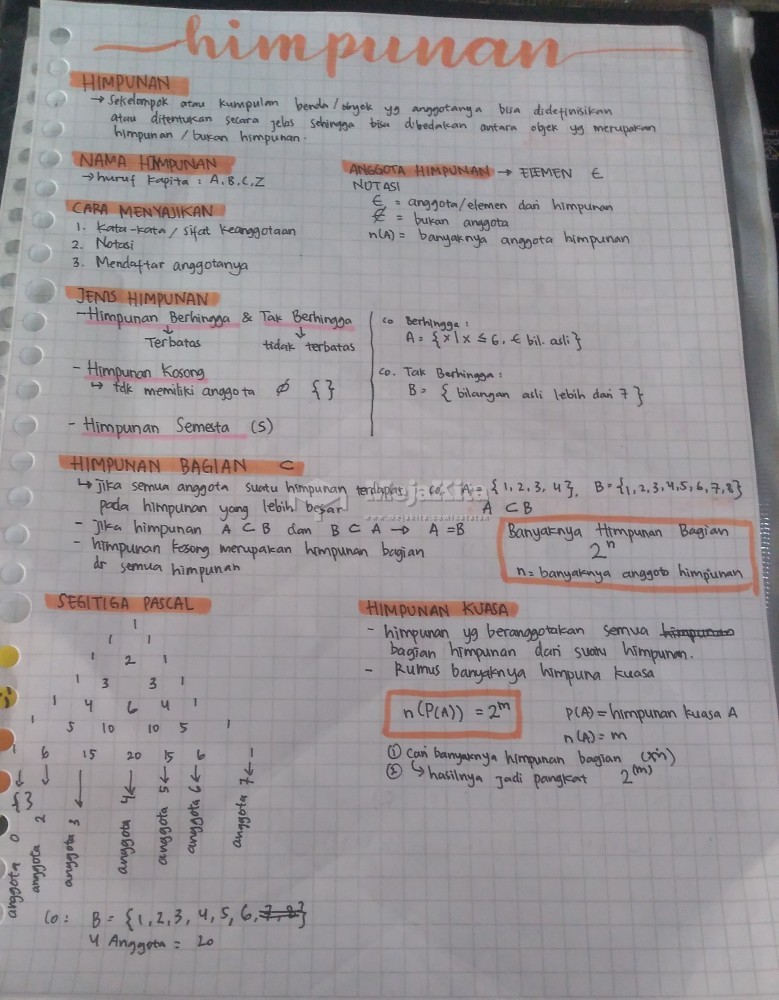 himpunan
HIMPUNAN
→ Sekelompok atau kumpulan benda/obyek yg anggotanya bisa didefinisikan
atau ditentukan secara jelas sehingga bisa dibedakan antara objek yg merupakan
himpunan / bukan himpunan.
NAMA HIMPUNAN
→ huruf kapita : A, B, C, Z
CARA MENYAJIKAN
1. Kata-kata / sifat keanggotaan
2. Notasi
3. Mendaftar anggotanya
ANGGOTA HIMPUNAN → ELEMEN ∈
NOTASI
∈ = anggota/elemen dari himpunan
∉ = bukan anggota
n(A) = banyaknya anggota himpunan
JENIS HIMPUNAN
- Himpunan Berhingga & Tak Berhingga
↓ ↓
Terbatas tidak terbatas
- Himpunan Kosong
↳ tdk memiliki anggota ∅ { }
- Himpunan Semesta (S)
Co Berhingga :
A = { x | x ≤ 6, ∈ bil. asli }
Co. Tak Berhingga :
B = { bilangan asli lebih dari 7 }
HIMPUNAN BAGIAN ⊂
↳ jika semua anggota suatu himpunan terdapat
pada himpunan yang lebih besar
- jika himpunan A ⊂ B dan B ⊂ A → A = B
- himpunan kosong merupakan himpunan bagian
dr semua himpunan
co. A = { 1, 2, 3, 4 }, B = {1, 2, 3, 4, 5, 6, 7, 8}
A ⊂ B
MejaKita
Banyaknya Himpunan Bagian
2ⁿ
n = banyaknya anggota himpunan
SEGITIGA PASCAL
1
1 1
1 2 1
1 3 3 1
1 4 6 4 1
1 5 10 10 5 1
1 6 15 20 15 6 1
{ }
anggota 0
anggota 2
anggota 3
anggota 4
anggota 5
anggota 6
anggota 7
Co : B = {1, 2, 3, 4, 5, 6, 7, 8}
4 Anggota = 20
HIMPUNAN KUASA
- himpunan yg beranggotakan semua himpunan
bagian himpunan dari suatu himpunan.
- Rumus banyaknya himpuna kuasa
n(P(A)) = 2ᵐ
P(A) = himpunan kuasa A
n(A) = m
① cari banyaknya himpunan bagian
② ↳ hasilnya jadi pangkat 2⁽ᵐ⁾